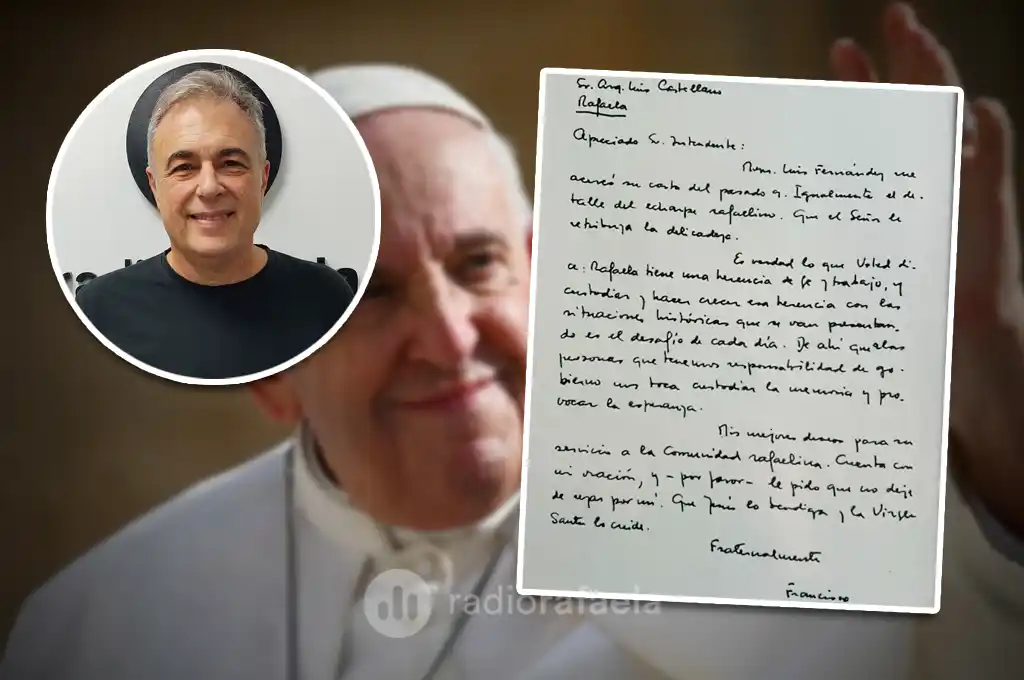 Sr. Arq. Luis Castellano
Rafaela
Apreciado Sr. Intendente:
Mons. Luis Fernández me
acercó su carta del pasado 9. Igualmente el de-
talle del echarpe rafaelino. Que el Señor le
retribuya la delicadeza.
Es verdad lo que Usted di-
ce: Rafaela tiene una herencia de fe y trabajo, y
custodiar y hacer crecer esa herencia con las
situaciones históricas que se van presentan-
do es el desafío de cada día. De ahí que a las
personas que tenemos responsabilidad de go-
bierno nos toca custodiar la memoria y pro-
vocar la esperanza.
Mis mejores deseos para su
servicio a la Comunidad rafaelina. Cuenta con
mi oración, y - por favor - le pido que no deje
de rezar por mí. Que Jesús lo bendiga y la Virgen
Santa lo cuide.
Fraternalmente
Francisco
radiorafaela